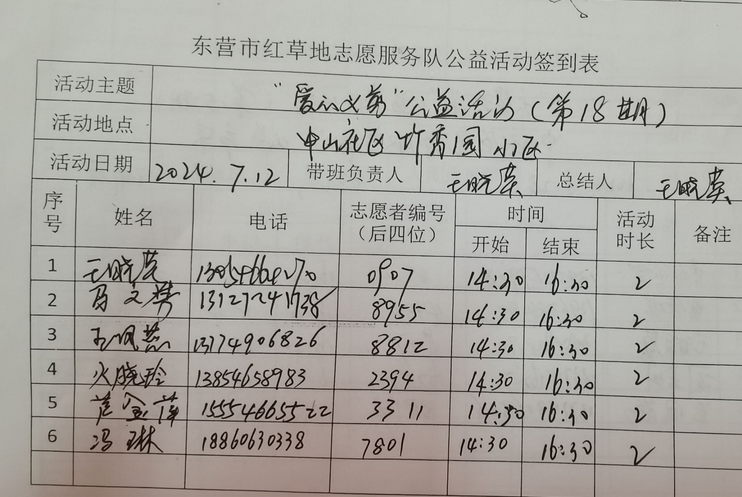 东营市红草地志愿服务队公益活动签到表
活动主题 "爱心义剪"公益活动(第18期)
活动地点 中山社区竹香园小区
活动日期 2024.7.12 带班负责人 王晓荣 总结人 王晓荣
序号 姓名 电话 志愿者编号(后四位) 时间 开始 结束 活动时长 备注
1 王晓荣 0907 14:30 16:30 2
2 8955 14:30 16:30 2
3 13774906826 8812 14:30 16:30 2
4 火晓玲 13854658983 2394 14:30 16:30 2
5 15554665522 3311 14:30 16:30 2
6 冯琳 18860630338 7801 14:30 16:30 2